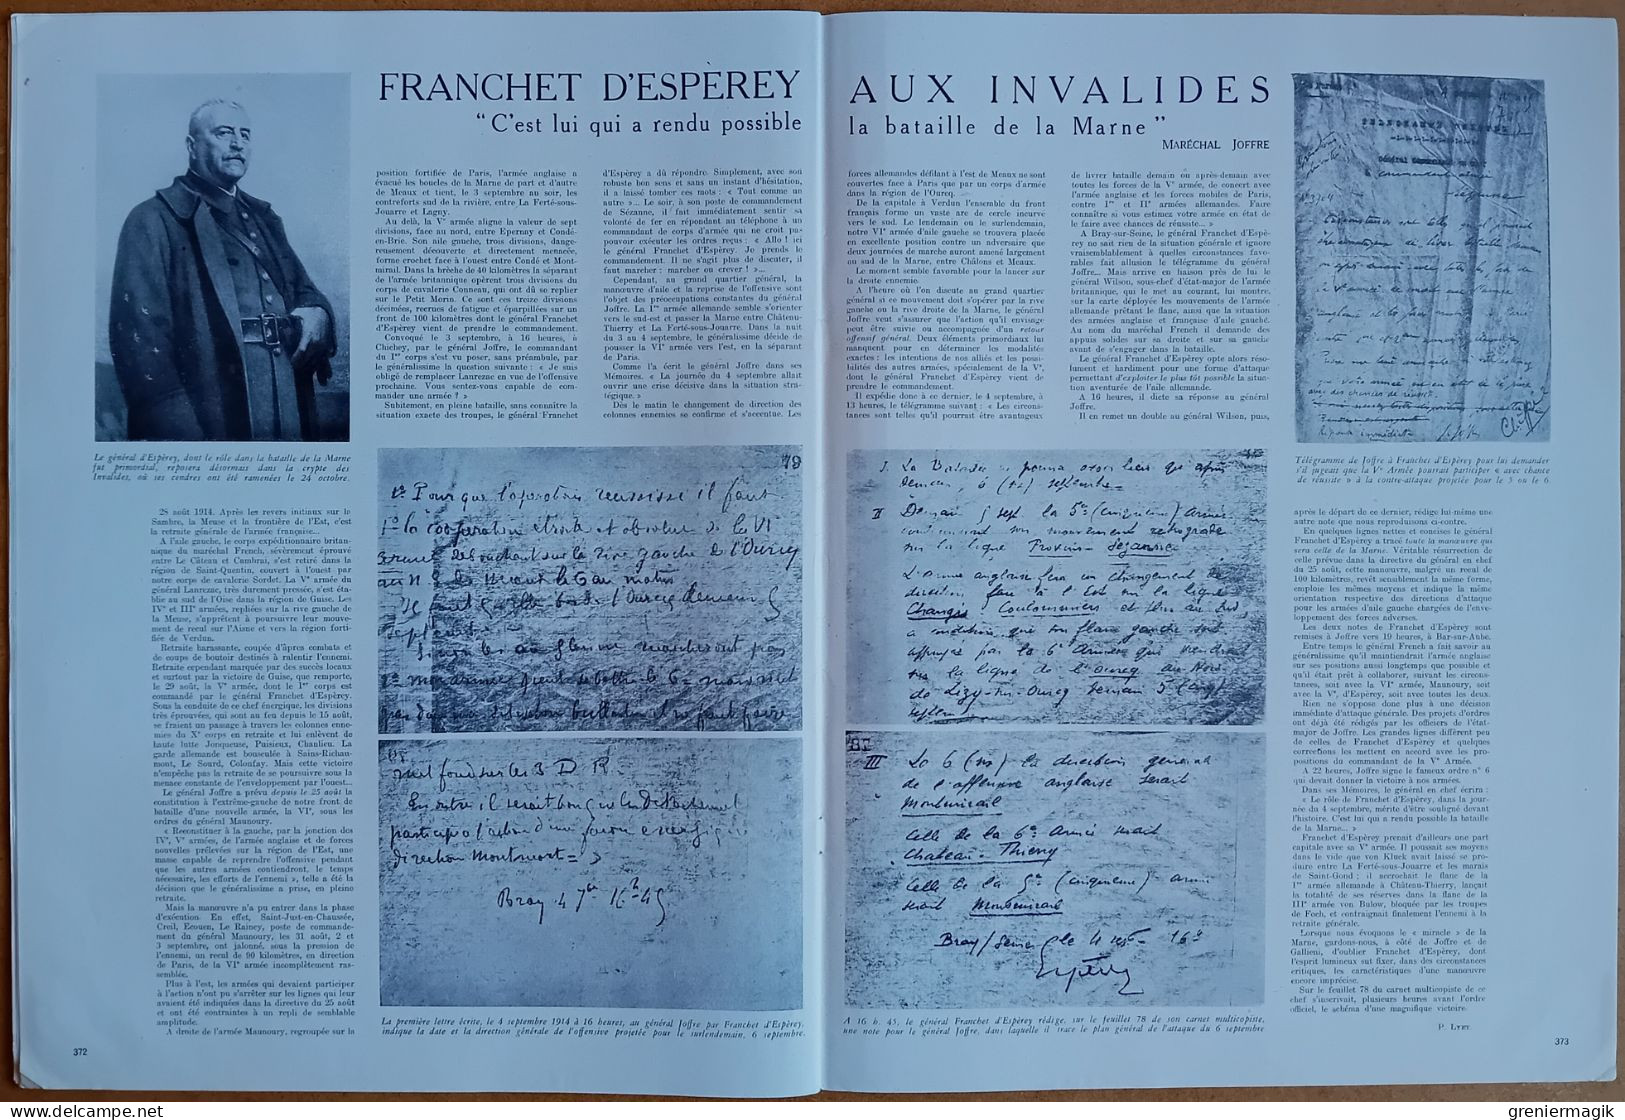 FRANCHET D'ESPÈREY AUX INVALIDES
"C'est lui qui a rendu possible la bataille de la Marne"
MARÉCHAL JOFFRE
Le général d'Espèrey, dont le rôle dans la bataille de la Marne
fut primordial, reposera désormais dans la crypte des
Invalides, où ses cendres ont été ramenées le 24 octobre.
28 août 1914. Après les revers initiaux sur le
Sambre, la Meuse et la frontière de l'Est, c'est
la retraite générale de l'armée française...
A l'aile gauche, le corps expéditionnaire britan-
nique du maréchal French, sévèrement éprouvé
entre Le Câteau et Cambrai, s'est retiré dans la
région de Saint-Quentin, couvert à l'ouest par
notre corps de cavalerie Sordet. La Vᵉ armée du
général Lanrezac, très durement pressée, s'est éta-
blie au sud de l'Oise dans la région de Guise. Les
IVᵉ et IIIᵉ armées, repliées sur la rive gauche de
la Meuse, s'apprêtent à poursuivre leur mouve-
ment de recul sur l'Aisne et vers la région forti-
fiée de Verdun.
Retraite harassante, coupée d'âpres combats et
de coups de boutoir destinés à ralentir l'ennemi.
Retraite cependant marquée par des succès locaux
et surtout par la victoire de Guise, que remporte,
le 29 août, la Vᵉ armée, dont le 1ᵉʳ corps est
commandé par le général Franchet d'Espèrey.
Sous la conduite de ce chef énergique, les divisions
très éprouvées, qui sont au feu depuis le 15 août,
se fraient un passage à travers les colonnes enne-
mies du Xᵉ corps en retraite et lui enlèvent de
haute lutte Jonqueuse, Puisieux, Chanlieu. La
garde allemande est bousculée à Sains-Richau-
mont, Le Sourd, Colonfay. Mais cette victoire
n'empêche pas la retraite de se poursuivre sous la
menace constante de l'enveloppement par l'ouest...
Le général Joffre a prévu depuis le 25 août la
constitution à l'extrême-gauche de notre front de
bataille d'une nouvelle armée, la VIᵉ, sous les
ordres du général Maunoury.
« Reconstituer à la gauche, par la jonction des
IVᵉ, Vᵉ armées, de l'armée anglaise et de forces
nouvelles prélevées sur la région de l'Est, une
masse capable de reprendre l'offensive pendant
que les autres armées contiendront, le temps
nécessaire, les efforts de l'ennemi », telle a été la
décision que le généralissime a prise, en pleine
retraite.
Mais la manœuvre n'a pu entrer dans la phase
d'exécution. En effet, Saint-Just-en-Chaussée,
Creil, Ecouen, Le Raincy, poste de commande-
ment du général Maunoury, les 31 août, 2 et
3 septembre, ont jalonné, sous la pression de
l'ennemi, un recul de 90 kilomètres, en direction
de Paris, de la VIᵉ armée incomplètement ras-
semblée.
Plus à l'est, les armées qui devaient participer
à l'action n'ont pu s'arrêter sur les lignes qui leur
avaient été indiquées dans la directive du 25 août
et ont été contraintes à un repli de semblable
amplitude.
A droite de l'armée Maunoury, regroupée sur la
372
position fortifiée de Paris, l'armée anglaise a
évacué les boucles de la Marne de part et d'autre
de Meaux et tient, le 3 septembre au soir, les
contreforts sud de la rivière, entre La Ferté-sous-
Jouarre et Lagny.
Au delà, la Vᵉ armée aligne la valeur de sept
divisions, face au nord, entre Epernay et Condé-
en-Brie. Son aile gauche, trois divisions, dange-
reusement découverte et directement menacée,
forme crochet face à l'ouest entre Condé et Mont-
mirail. Dans la brèche de 40 kilomètres la séparant
de l'armée britannique opèrent trois divisions du
corps de cavalerie Conneau, qui ont dû se replier
sur le Petit Morin. Ce sont ces treize divisions
décimées, recrues de fatigue et éparpillées sur un
front de 100 kilomètres dont le général Franchet
d'Espèrey vient de prendre le commandement.
Convoqué le 3 septembre, à 16 heures, à
Chichey, par le général Joffre, le commandant
du 1ᵉʳ corps s'est vu poser, sans préambule, par
le généralissime la question suivante : « Je suis
obligé de remplacer Lanrezac en vue de l'offensive
prochaine. Vous sentez-vous capable de com-
mander une armée ? »
Subitement, en pleine bataille, sans connaître la
situation exacte des troupes, le général Franchet
d'Espèrey a dû répondre. Simplement, avec son
robuste bon sens et sans un instant d'hésitation,
il a laissé tomber ces mots : « Tout comme un
autre »... Le soir, à son poste de commandement
de Sézanne, il fait immédiatement sentir sa
volonté de fer en répondant au téléphone à un
commandant de corps d'armée qui ne croit pas
pouvoir exécuter les ordres reçus : « Allo ! ici
le général Franchet d'Espèrey. Je prends le
commandement. Il ne s'agit plus de discuter, il
faut marcher : marcher ou crever ! »...
Cependant, au grand quartier général, la
manœuvre d'aile et la reprise de l'offensive sont
l'objet des préoccupations constantes du général
Joffre. La Iʳᵉ armée allemande semble s'orienter
vers le sud-est et passer la Marne entre Château-
Thierry et La Ferté-sous-Jouarre. Dans la nuit
du 3 au 4 septembre, le généralissime décide de
pousser la VIᵉ armée vers l'est, en la séparant
de Paris.
Comme l'a écrit le général Joffre dans ses
Mémoires. « La journée du 4 septembre allait
ouvrir une crise décisive dans la situation stra-
tégique. »
Dès le matin le changement de direction des
colonnes ennemies se confirme et s'accentue. Les
79
Bray 4 7ᵇʳᵉ 16ʰ45
La première lettre écrite, le 4 septembre 1914 à 16 heures, au général Joffre par Franchet d'Espèrey,
indique la date et la direction générale de l'offensive projetée pour le surlendemain, 6 septembre.
forces allemandes défilant à l'est de Meaux ne sont
couvertes face à Paris que par un corps d'armée
dans la région de l'Ourcq.
De la capitale à Verdun l'ensemble du front
français forme un vaste arc de cercle incurvé
vers le sud. Le lendemain ou le surlendemain,
notre VIᵉ armée d'aile gauche se trouvera placée
en excellente position contre un adversaire que
deux journées de marche auront amené largement
au sud de la Marne, entre Châlons et Meaux.
Le moment semble favorable pour la lancer sur
la droite ennemie.
A l'heure où l'on discute au grand quartier
général si ce mouvement doit s'opérer par la rive
gauche ou la rive droite de la Marne, le général
Joffre veut s'assurer que l'action qu'il envisage
peut être suivie ou accompagnée d'un retour
offensif général. Deux éléments primordiaux lui
manquent pour en déterminer les modalités
exactes : les intentions de nos alliés et les possi-
bilités des autres armées, spécialement de la Vᵉ,
dont le général Franchet d'Espèrey vient de
prendre le commandement.
Il expédie donc à ce dernier, le 4 septembre, à
13 heures, le télégramme suivant : « Les circons-
tances sont telles qu'il pourrait être avantageux
de livrer bataille demain ou après-demain avec
toutes les forces de la Vᵉ armée, de concert avec
l'armée anglaise et les forces mobiles de Paris,
contre Iʳᵉ et IIᵉ armées allemandes. Faire
connaître si vous estimez votre armée en état de
le faire avec chances de réussite... »
A Bray-sur-Seine, le général Franchet d'Espè-
rey ne sait rien de la situation générale et ignore
vraisemblablement à quelles circonstances favo-
rables fait allusion le télégramme du général
Joffre... Mais arrive en liaison près de lui le
général Wilson, sous-chef d'état-major de l'armée
britannique, qui le met au courant, lui montre,
sur la carte déployée les mouvements de l'armée
allemande prêtant le flanc, ainsi que la situation
des armées anglaise et française d'aile gauche.
Au nom du maréchal French il demande des
appuis solides sur sa droite et sur sa gauche
avant de s'engager dans la bataille.
Le général Franchet d'Espèrey opte alors réso-
lument et hardiment pour une forme d'attaque
permettant d'exploiter le plus tôt possible la situa-
tion aventurée de l'aile allemande.
A 16 heures, il dicte sa réponse au général
Joffre.
Il en remet un double au général Wilson, puis,
I. La Bataille ne pourra avoir lieu qu'après
demain, 6 (six) septembre.
II Demain 5 sept. la 5ᵉ (cinquième) Armée
continuera son mouvement rétrograde
sur la ligne Provins-Sézanne
L'armée anglaise fera un changement de
direction, face à l'Est sur la ligne
Changis Coulommiers et plus au Sud,
à condition que son flanc gauche soit
appuyé par la 6ᵉ Armée qui viendrait
sur la ligne de l'Ourcq au Nord
de Lizy-sur-Ourcq demain 5 (cinq)
septembre
III Le 6 (six) la direction générale
de l'offensive anglaise serait
Montmirail
Celle de la 6ᵉ Armée serait
Château-Thierry
Celle de la 5ᵉ (cinquième) armée
serait Montmirail
Bray s/Seine le 4 sept 16ʰ
Espèrey
A 16 h. 45, le général Franchet d'Espèrey rédige, sur le feuillet 78 de son carnet multicopiste,
une note pour le général Joffre, dans laquelle il trace le plan général de l'attaque du 6 septembre
Télégramme de Joffre à Franchet d'Espèrey pour lui demander
s'il jugeait que la Vᵉ Armée pourrait participer « avec chance
de réussite » à la contre-attaque projetée pour le 5 ou le 6.
après le départ de ce dernier, rédige lui-même une
autre note que nous reproduisons ci-contre.
En quelques lignes nettes et concises le général
Franchet d'Espèrey a tracé toute la manœuvre qui
sera celle de la Marne. Véritable résurrection de
celle prévue dans la directive du général en chef
du 25 août, cette manœuvre, malgré un recul de
100 kilomètres, revêt sensiblement la même forme,
emploie les mêmes moyens et indique la même
orientation respective des directions d'attaque
pour les armées d'aile gauche chargées de l'enve-
loppement des forces adverses.
Les deux notes de Franchet d'Espèrey sont
remises à Joffre vers 19 heures, à Bar-sur-Aube.
Entre temps le général French a fait savoir au
généralissime qu'il maintiendrait l'armée anglaise
sur ses positions aussi longtemps que possible et
qu'il était prêt à collaborer, suivant les circons-
tances, soit avec la VIᵉ armée, Maunoury, soit
avec la Vᵉ, d'Espèrey, soit avec toutes les deux.
Rien ne s'oppose donc plus à une décision
immédiate d'attaque générale. Des projets d'ordres
ont déjà été rédigés par les officiers de l'état-
major de Joffre. Les grandes lignes diffèrent peu
de celles de Franchet d'Espèrey et quelques
corrections les mettent en accord avec les pro-
positions du commandant de la Vᵉ Armée.
A 22 heures, Joffre signe le fameux ordre n° 6
qui devait donner la victoire à nos armées.
Dans ses Mémoires, le général en chef écrira :
« Le rôle de Franchet d'Espèrey, dans la jour-
née du 4 septembre, mérite d'être souligné devant
l'histoire. C'est lui qui a rendu possible la bataille
de la Marne... »
Franchet d'Espèrey prenait d'ailleurs une part
capitale avec sa Vᵉ armée. Il poussait ses moyens
dans le vide que von Kluck avait laissé se pro-
duire entre La Ferté-sous-Jouarre et les marais
de Saint-Gond ; il accrochait le flanc de la
Iʳᵉ armée allemande à Château-Thierry, lançait
la totalité de ses réserves dans le flanc de la
IIIᵉ armée von Bulow, bloquée par les troupes
de Foch, et contraignait finalement l'ennemi à la
retraite générale.
Lorsque nous évoquons le « miracle » de la
Marne, gardons-nous, à côté de Joffre et de
Gallieni, d'oublier Franchet d'Espèrey, dont
l'esprit lumineux sut fixer, dans des circonstances
critiques, les caractéristiques d'une manœuvre
encore imprécise.
Sur le feuillet 78 du carnet multicopiste de ce
chef s'inscrivait, plusieurs heures avant l'ordre
officiel, le schéma d'une magnifique victoire.
P. LYET
373
greniermagik